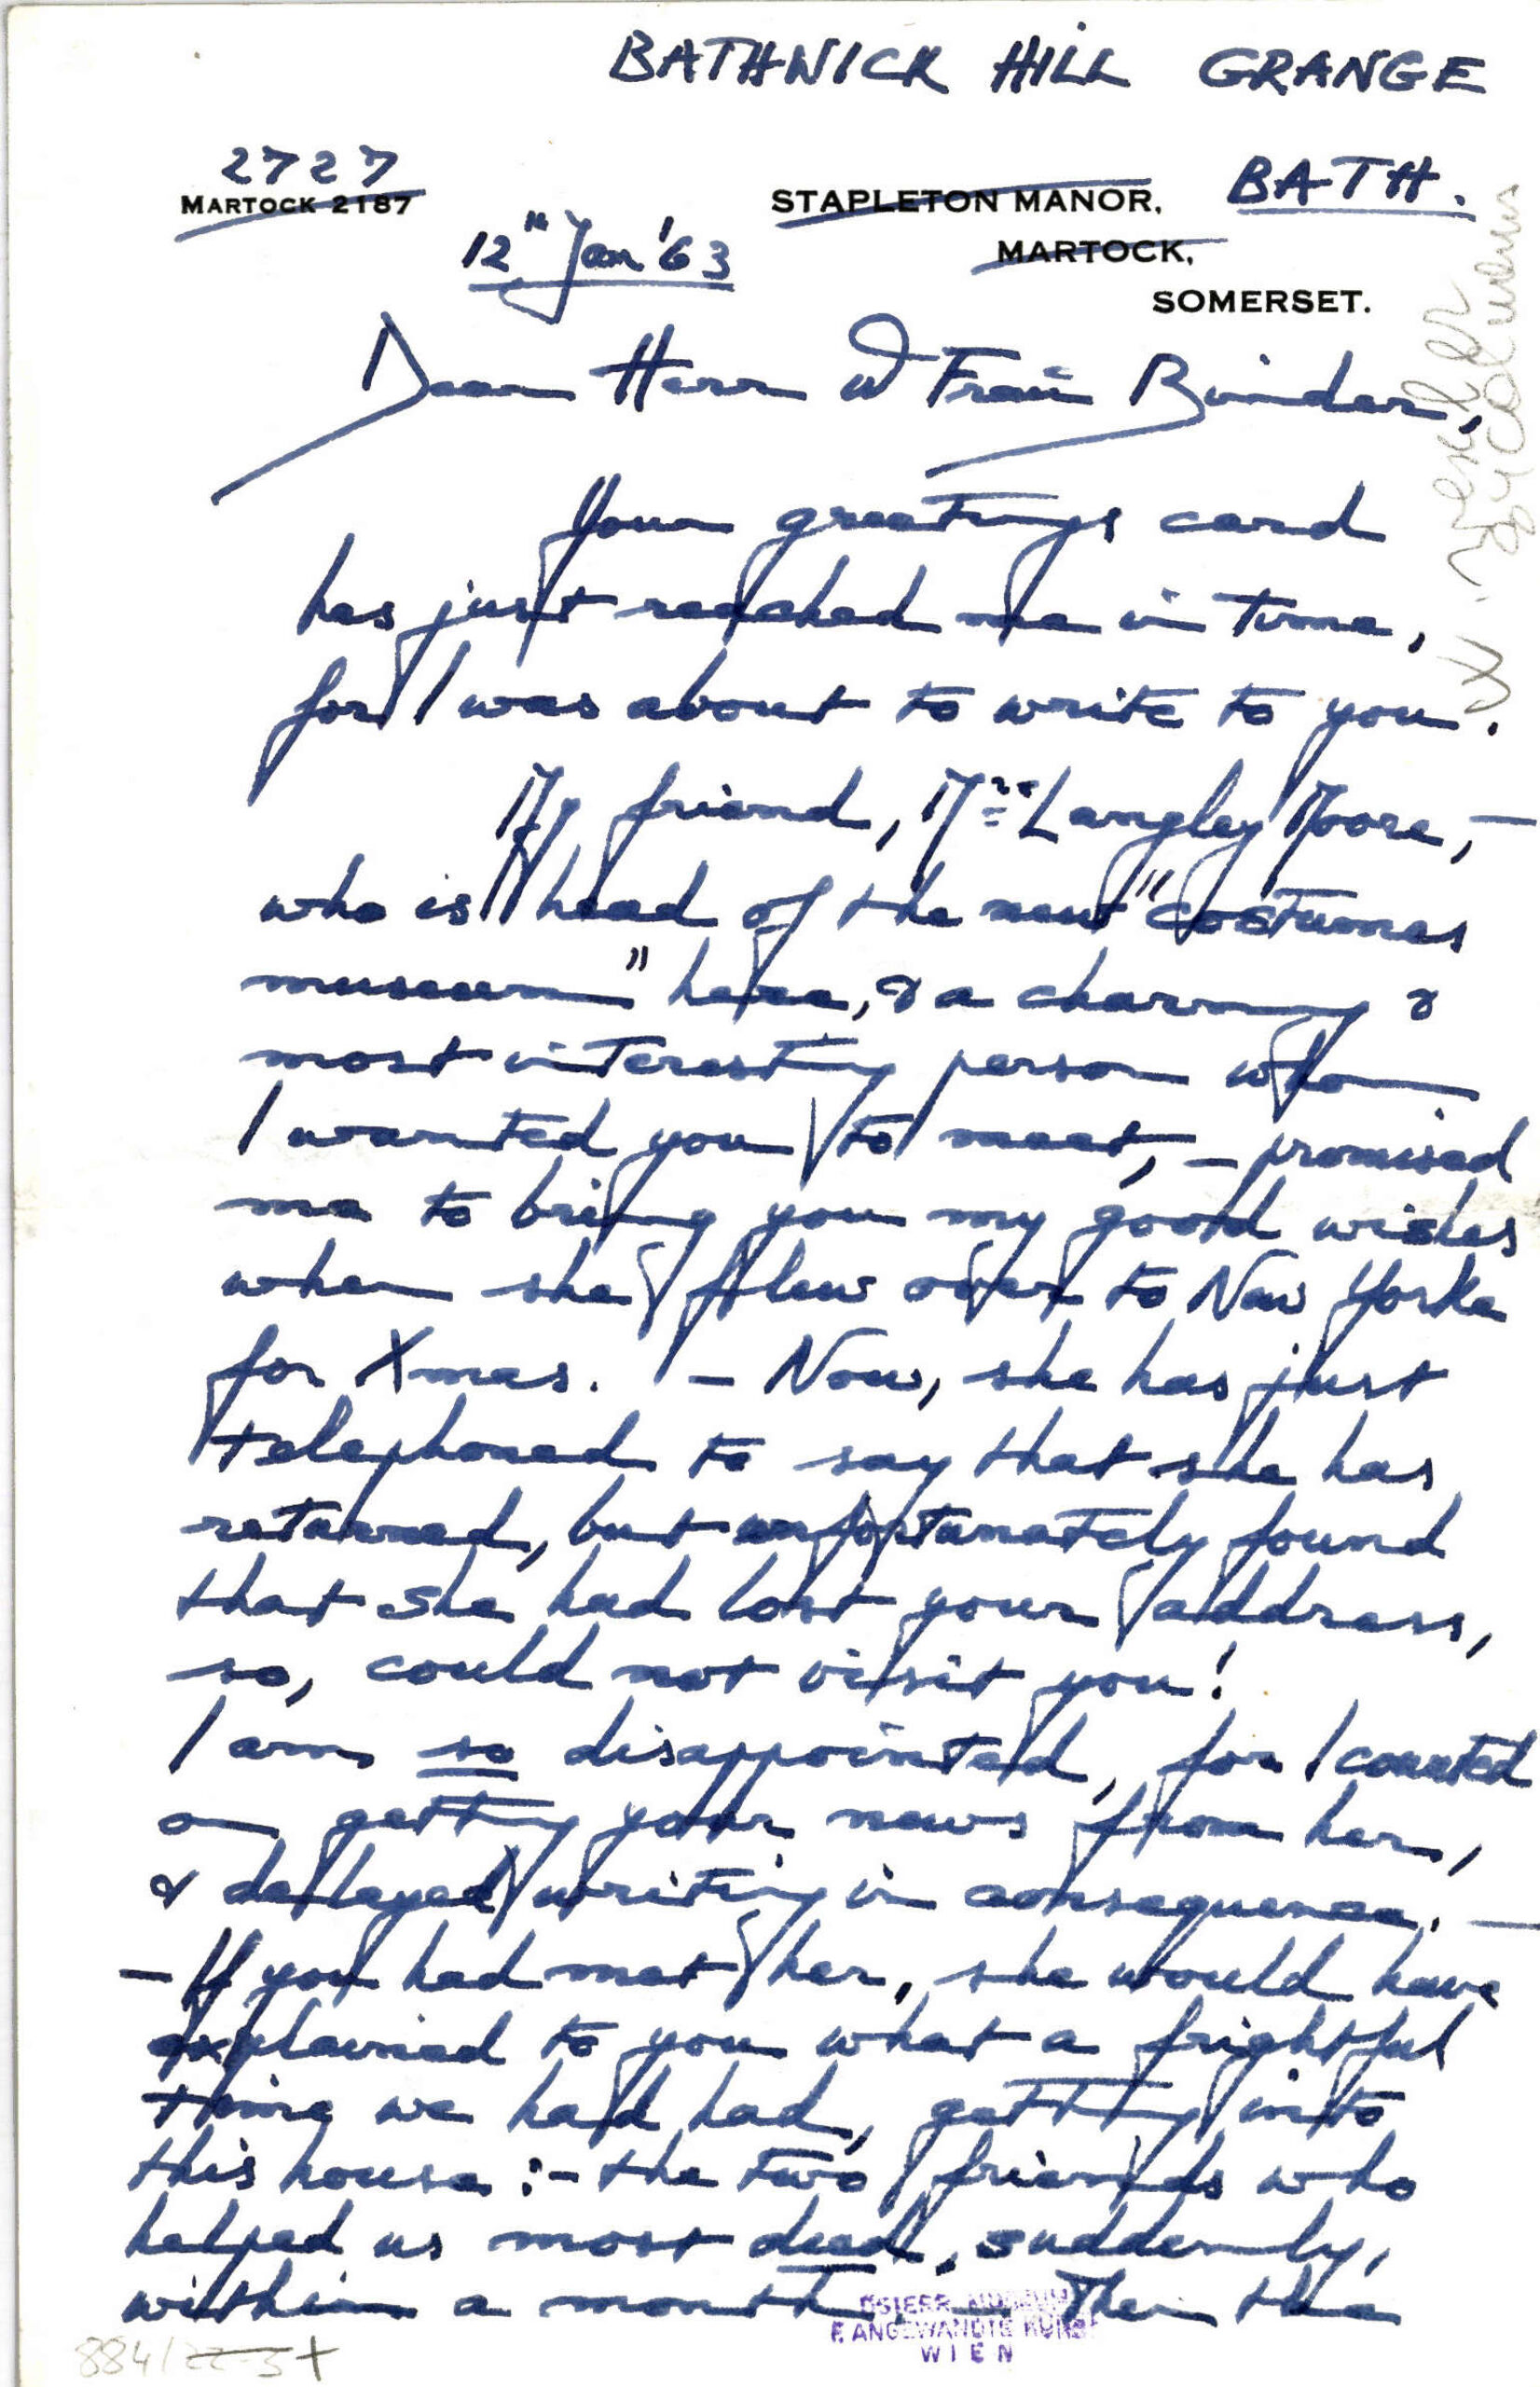 BATHWICK HILL GRANGE
2727
MARTOCK 2187
STAPLETON MANOR, BATH.
12" Jan '63
MARTOCK,
SOMERSET.
Dear Herr & Frau Binder,
Your greetings card
has just reached me in time,
for I was about to write to you.
My friend, Mrs Langley Moore, –
who is head of the new "costumes
museum" here, & a charming &
most interesting person whom
I wanted you to meet, – promised
me to bring you my good wishes
when she flew over to New Yorke
for Xmas. – Now, she has just
telephoned to say that she has
returned, but unfortunately found
that she had lost your address,
so, could not visit you!
I am so disappointed, for I counted
on getting your news from her,
& delayed writing in consequence. –
– If you had met her, she would have
explained to you what a frightful
time we had had, getting into
this house :– the two friends who
helped us most died, suddenly,
within a month, – Then the
ÖSTERR. MUSEUM
F. ANGEWANDTE KUNST
WIEN